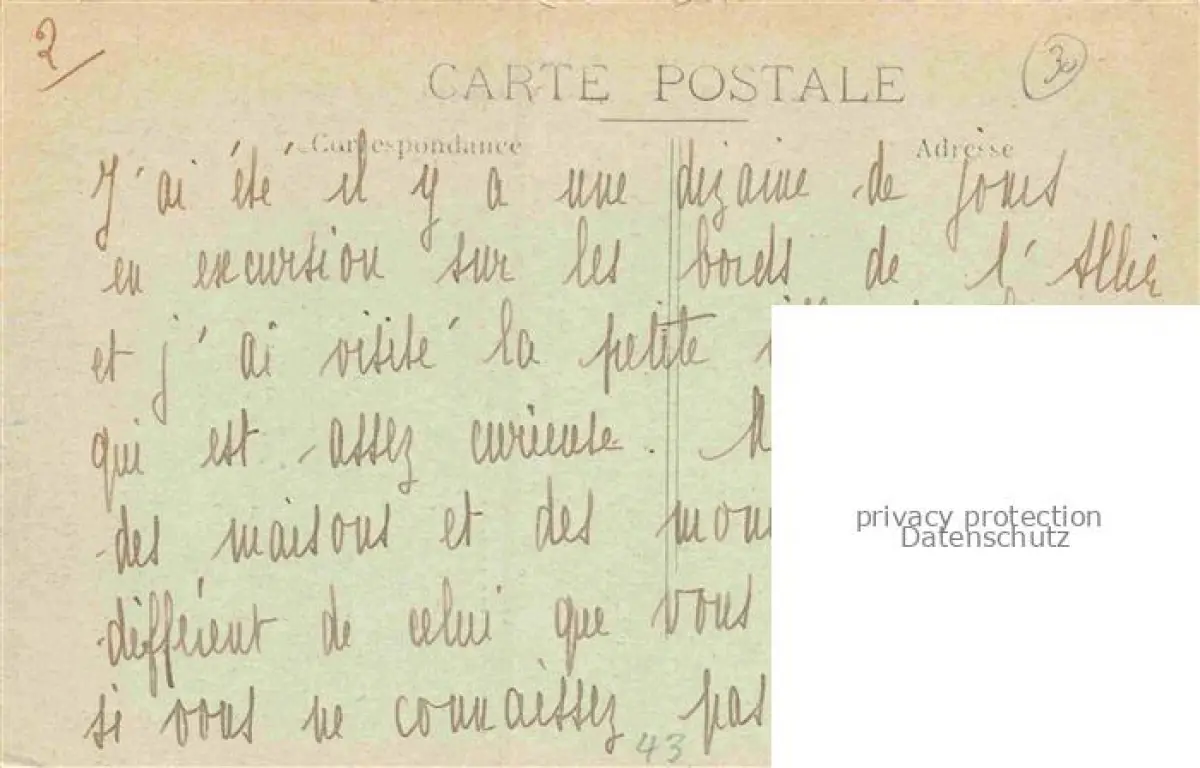 2
CARTE POSTALE
30
Correspondance
Adresse
J'ai été il y a une dizaine de jours
en excursion sur les bords de l'Allier
et j'ai visité la petite
qui est assez curieuse.
des maisons et des
différent de celui que vous
si vous ne connaissez pas
43
privacy protection
Datenschutz